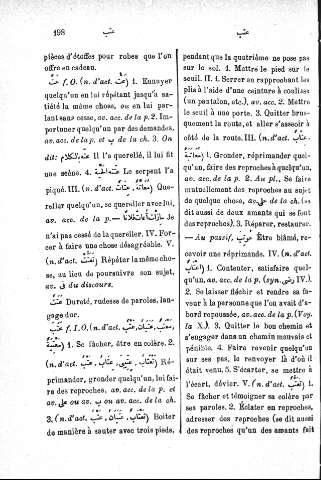 198
عتب
عتب
pièces d'étoffes pour robes que l'on
offre en cadeau.
عتّ f. O. (n. d'act. عتّ) 1. Ennuyer
quelqu'un en lui répétant jusqu'à sa-
tiété la même chose, ou en lui par-
lant sans cesse, av. acc. de la p. 2. Im-
portuner quelqu'un par des demandes,
av. acc. de la p. et ب de la ch. 3. On
dit: عتّه بالكلام Il l'a querellé, il lui fit
une scène. 4. Le serpent l'a
piqué. III. (n. d'act. معاتّة, عتات) Que-
reller quelqu'un, se quereller avec lui,
av. acc. de la p. — Je
n'ai pas cessé de la quereller. IV. For-
cer à faire une chose désagréable. V.
(n. d'act. تعتّت) Répéter la même cho-
se, au lieu de poursuivre son sujet,
av. في du discours.
عتت Dureté, rudesse de paroles, lan-
gage dur.
عتب f. I. O. (n. d'act. عتب, عتبان,
معتب,
معتبة) 1. Se fâcher, être en colère. 2.
(n. d'act. عتب, عتاب, عتيبى, تعتاب) Ré-
primander, gronder quelqu'un, lui fai-
re des reproches, av. acc. de la p. et
av. على ou av. ب ou av. acc. de la ch.
3. (n. d'act. عتب, عتبان, تعتاب) Boiter
de manière à sauter avec trois pieds,
pendant que la quatrième ne pose pas
sur le sol. 4. Mettre le pied sur le
seuil. II. 1. Serrer en rapprochant les
plis à l'aide d'une ceinture à coulisse
(un pantalon, etc.), av. acc. 2. Mettre
le seuil à une porte. 3. Quitter brus-
quement la route, et aller s'asseoir à
côté de la route. III. (n. d'act. عتاب,
معاتبة) 1. Gronder, réprimander quel-
qu'un, faire des reproches à quelqu'un,
av. acc. de la p. 2. Au pl., Se faire
mutuellement des reproches au sujet
de quelque chose, av. على de la ch. (se
dit aussi de deux amants qui se font
des reproches). 3. Réparer, restaurer.
— Au passif, عوتب Être blâmé, re-
cevoir une réprimande. IV. (n. d'act.
إعتاب) 1. Contenter, satisfaire quel-
qu'un, av. acc. de la p. (syn. رضى IV.)
2. Se laisser fléchir et rendre sa fa-
veur à la personne que l'on avait d'a-
bord repoussée, av. acc. de la p. (Voy.
la X.) 3. Quitter le bon chemin et
s'engager dans un chemin mauvais et
pénible. 4. Faire revenir quelqu'un
sur ses pas, le renvoyer là d'où il
était venu. 5. S'écarter, se mettre à
l'écart, dévier. V. (n. d'act. تعتّب) 1.
Se fâcher et témoigner sa colère par
ses paroles. 2. Éclater en reproches,
adresser des reproches (se dit aussi
des reproches qu'un des amants fait